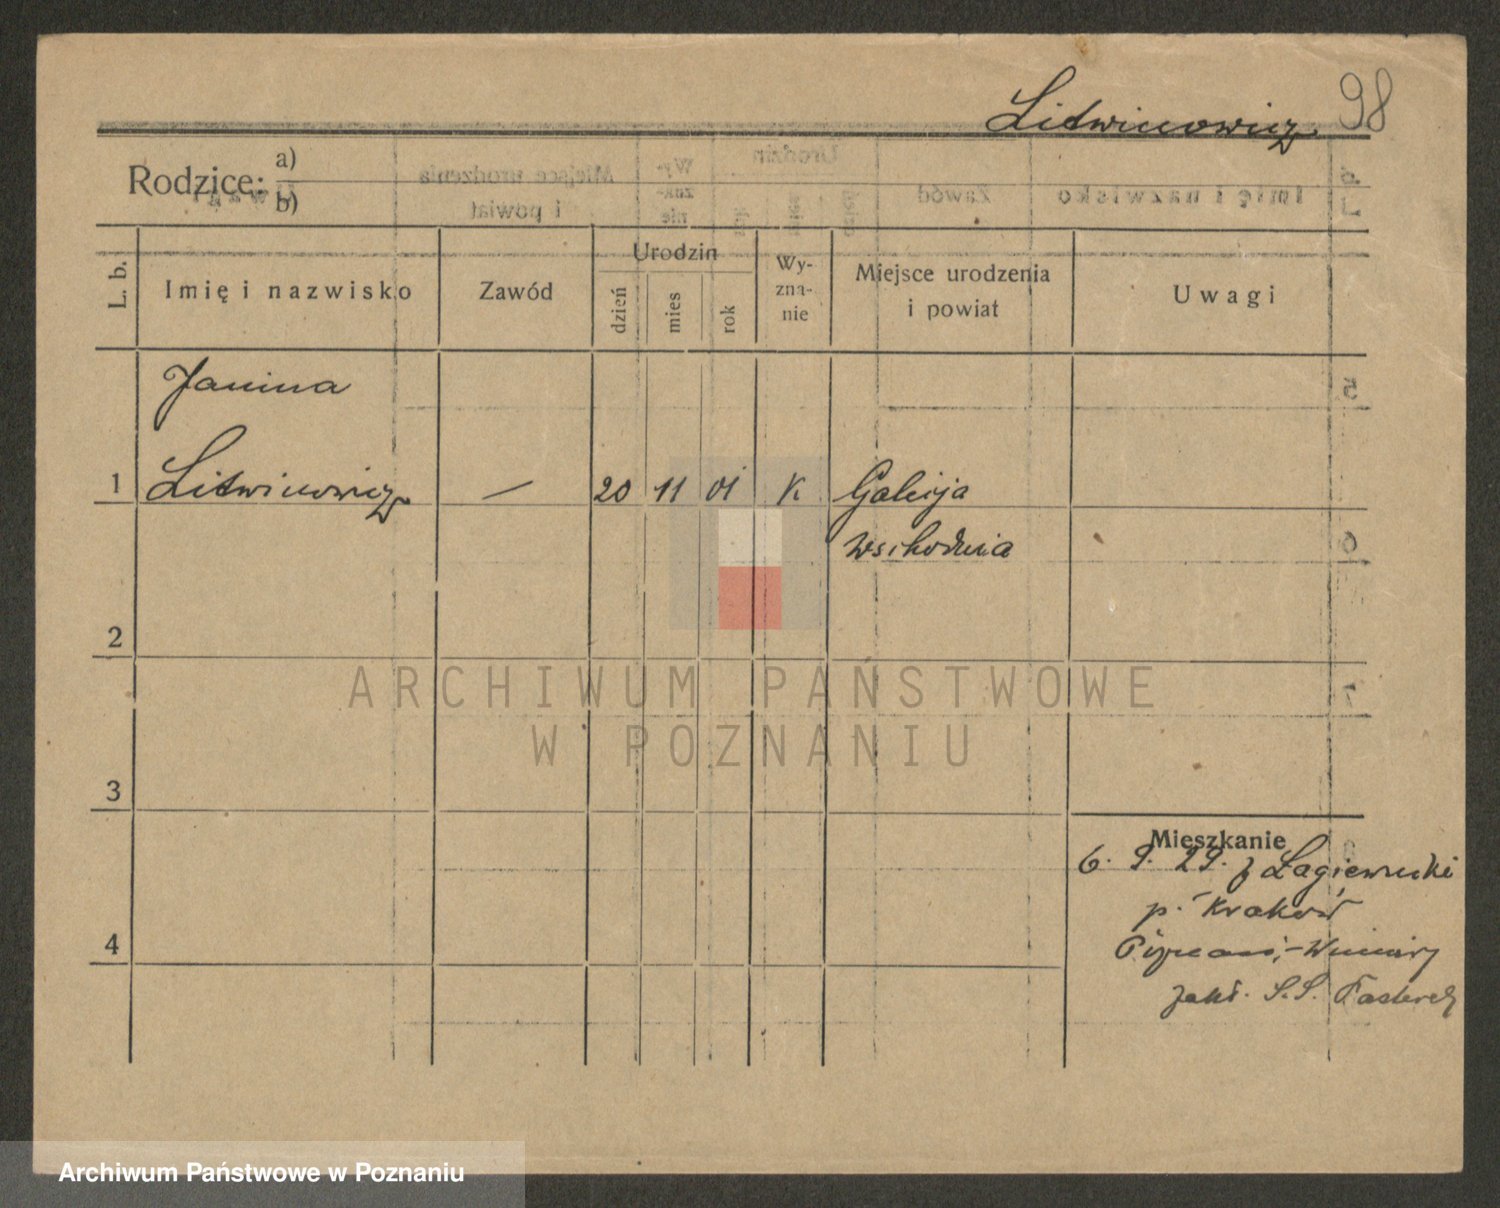 Litwinowicz 98
Rodzice: a)
b)
L. b.
Imię i nazwisko
Zawód
Urodzin
dzień
mies
rok
Wy-
zna-
nie
Miejsce urodzenia
i powiat
Uwagi
Janina
1 Litwinowicz — 20 11 01 K Galicja
wschodnia
2
3
4
Mieszkanie
6. 9. 29. z Łagiewniki
p. Kraków
Winiary
zakł. S.S. Pasterek
ARCHIWUM PAŃSTWOWE
W POZNANIU
Archiwum Państwowe w Poznaniu